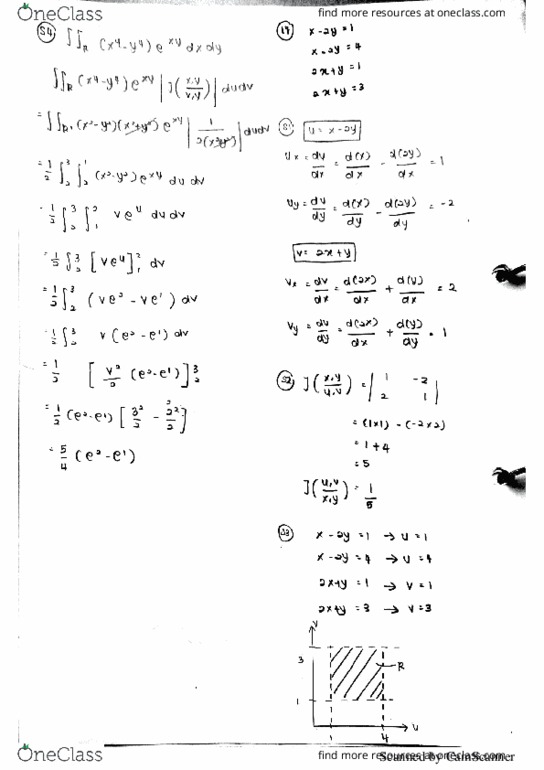 OneClass
find more resources at oneclass.com
S4
∬R (x⁴-y⁴) e^xy dx dy
∬R (x⁴-y⁴) e^xy |J(x,y/u,v)| du dv
= ∬R' (x²-y²)(x²+y²) e^xy |1/2(x²+y²)| du dv
(x²-y²) e^xy du dv
ve^u du dv
[ve^u]²₁ dv
= 1/2 ∫³₂ (ve² - ve¹) dv
v(e² - e¹) dv
= 1/2 [v²/2 (e² - e¹)]³₂
= 1/2 (e² - e¹) [3²/2 - 2²/2]
= 5/4 (e² - e¹)
x - 2y = 1
x - 2y = 4
2x + y = 1
2x + y = 3
S1
u = x - 2y
Ux = du/dx = d(x)/dx - d(2y)/dx = 1
Uy = du/dy = d(x)/dy - d(2y)/dy = -2
v = 2x + y
Vx = dv/dx = d(2x)/dx + d(y)/dx = 2
Vy = dv/dy = d(2x)/dy + d(y)/dy = 1
S2
J(x,y/u,v) = |1 -2
2 1|
= (1x1) - (-2x2)
= 1 + 4
= 5
J(u,v/x,y) = 1/5
S3
x - 2y = 1 → U = 1
x - 2y = 4 → U = 4
2x + y = 1 → V = 1
2x + y = 3 → V = 3
V
3
R
1
4
U
OneClass
find more resources at oneclass.com
Scanned by CamScanner